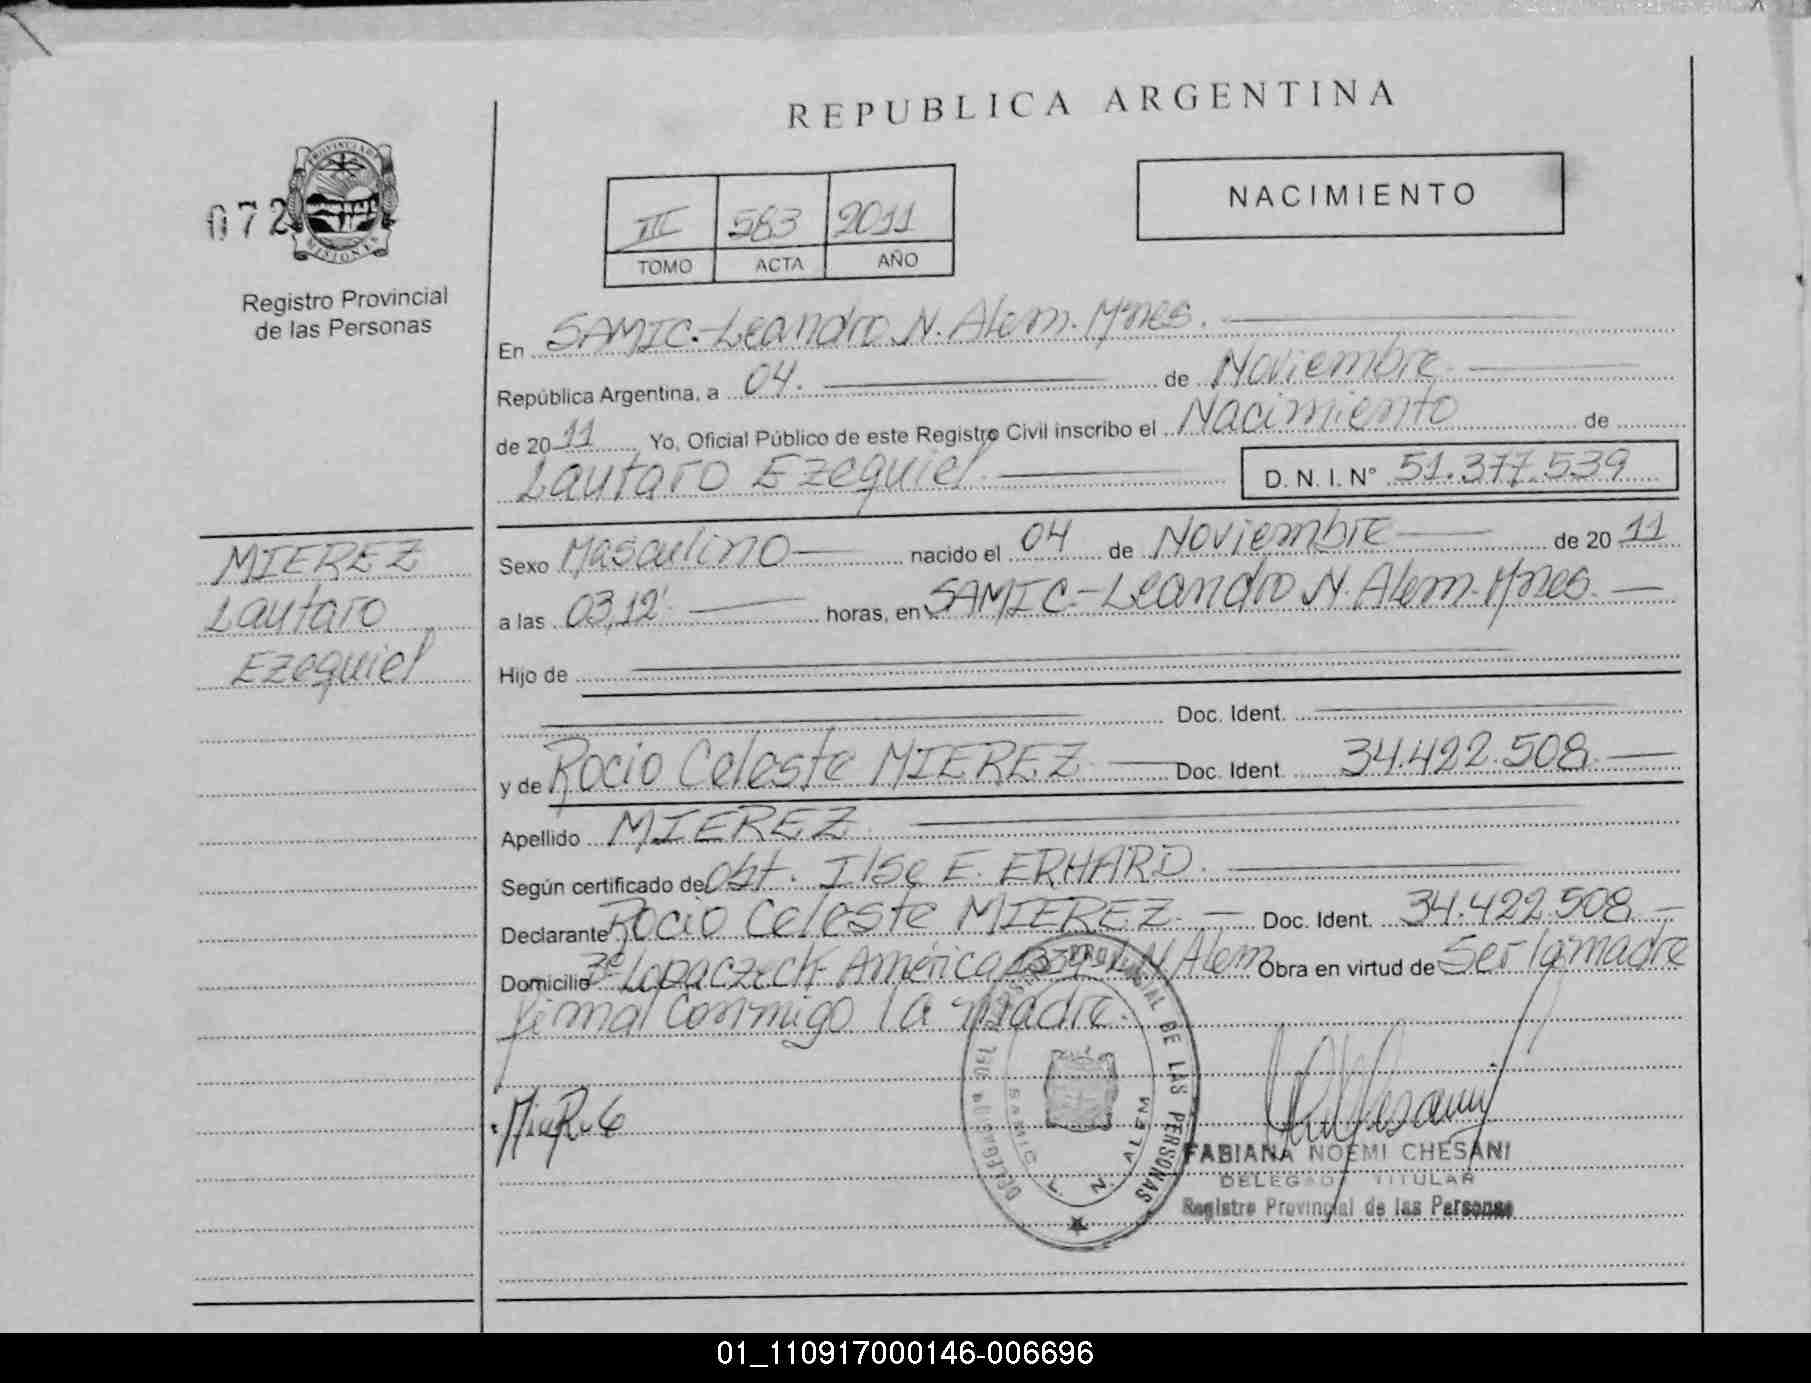 REPUBLICA ARGENTINA
NACIMIENTO
072
PROVINCIA DE MISIONES
Registro Provincial
de las Personas
III 583 2011
TOMO ACTA AÑO
En SAMIC.-Leandro N. Alem. Mnes.
República Argentina, a 04. de Noviembre
de 2011 Yo, Oficial Público de este Registro Civil inscribo el Nacimiento de
Lautaro Ezequiel. D. N. I. N° 51.377.539
MIEREZ
Lautaro
Ezequiel
Sexo Masculino nacido el 04 de Noviembre de 2011
a las 03,12' horas, en SAMIC.-Leandro N. Alem. Mnes.
Hijo de
Doc. Ident.
y de Rocio Celeste MIEREZ Doc. Ident. 34.422.508
Apellido MIEREZ
Según certificado de Obt. Ilse E. ERHARD.
Declarante Rocio Celeste MIEREZ. Doc. Ident. 34.422.508
Domicilio Bº Lopaczeck América L. N. Alem Obra en virtud de Ser la madre
firma Conmigo la Madre.
DELEGACION DEL REGISTRO PROVINCIAL DE LAS PERSONAS
SAMIC L. N. ALEM
FABIANA NOEMI CHESANI
DELEGADA TITULAR
Registro Provincial de las Personas
01_110917000146-006696